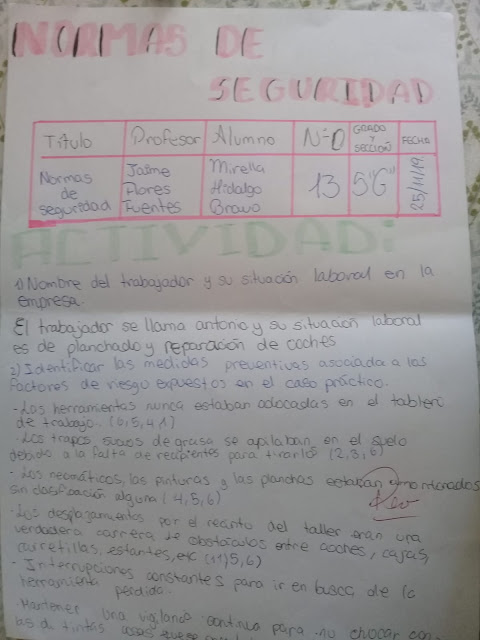 NORMAS DE
SEGURIDAD
Título Profesor Alumno N=O GRADO Y SECCIÓN FECHA
Normas de seguridad Jaime Flores Fuentes Mirella Hidalgo Bravo 13 5"G" 25/11/19
ACTIVIDAD:
1) Nombre del trabajador y su situación laboral en la
empresa.
El trabajador se llama antonio y su situación laboral
es de planchado y reparación de coches
2) Identificar las medidas preventivas asociada a los
factores de riesgo expuestos en el caso práctico.
- Las herramientas nunca estaban colocadas en el tablero
de trabajo.
- Los trapos sucios de grasa se apilaban en el suelo
debido a la falta de recipientes para tirarlos (2,3,6)
- Los neomáticos, las pinturas y las planchas estaban amontonados
sin clasificación alguna (4,5,6)
- Los desplazamientos por el recinto del taller eran una
verdadera carrera de obstáculos entre coches, cajas,
carretillas, estantes, etc (11) 5,6)
- Interrupciones constantes para ir en busca de la
herramienta perdida.
- Mantener una vigilancia continua para no chocar con